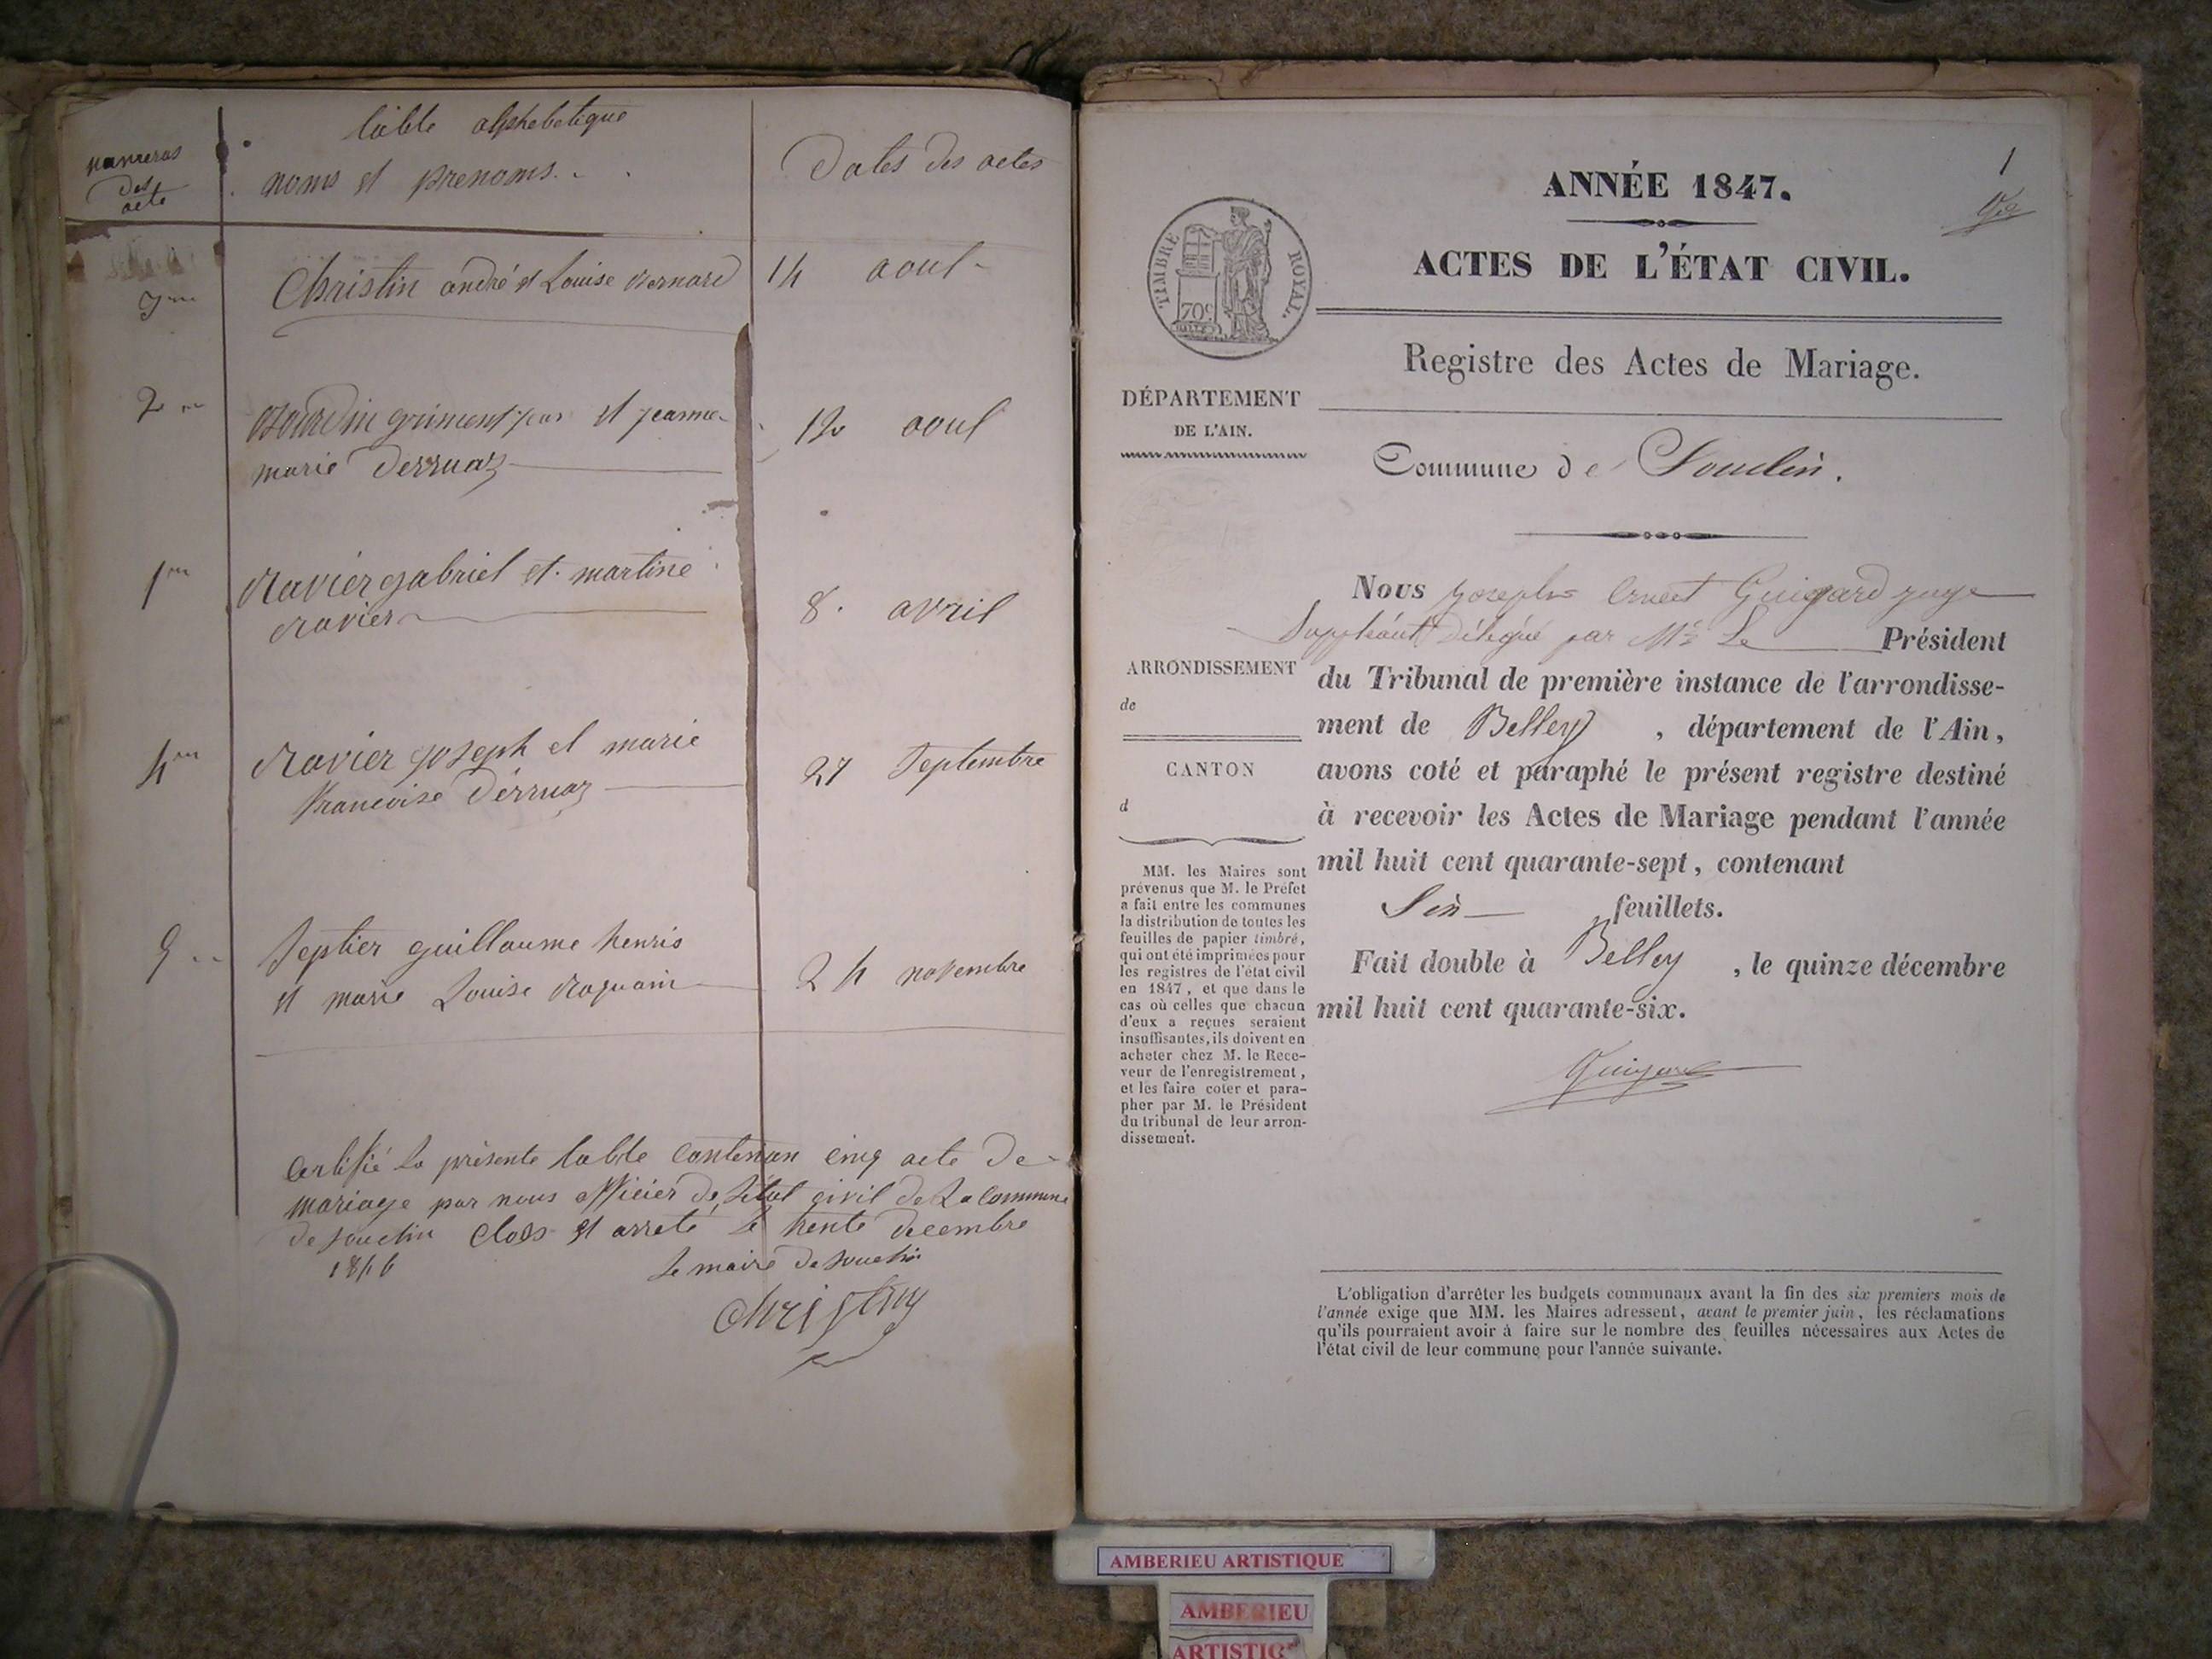 table alphebetique
numeros
des
acte
noms et prenoms.
Dates des actes
3me
Christin andré et Louise Bernard
14 aout
2me
Bourdin et jeanne
marie Derruaz
12 aout
1re
Ravier gabriel et martine
Ravier
8. avril
4me
Ravier joseph et marie
francoise Derruaz
27 Septembre
5
Septier guillaume henris
et marie Louise
24 novembre
Certifié la présente table contenan cinq acte de
mariage par nous officier de létat civil de La Commune
de souclin Clos et arreté le trente decembre
1846
le maire de souclin
Christin
1
ANNÉE 1847.
TIMBRE ROYAL.
70c
ACTES DE L'ÉTAT CIVIL.
Registre des Actes de Mariage.
DÉPARTEMENT
DE L'AIN.
Commune de Souclin.
Nous joseph Ernest Guigard juge
Suppléant Délégué par Mr Le Président
du Tribunal de première instance de l'arrondisse-
ment de Belley, département de l'Ain,
avons coté et paraphé le présent registre destiné
à recevoir les Actes de Mariage pendant l'année
mil huit cent quarante-sept, contenant
Six feuillets.
Fait double à Belley, le quinze décembre
mil huit cent quarante-six.
Guigard
ARRONDISSEMENT
de
CANTON
d
MM. les Maires sont
prévenus que M. le Préfet
a fait entre les communes
la distribution de toutes les
feuilles de papier timbré,
qui ont été imprimées pour
les registres de l'état civil
en 1847, et que dans le
cas où celles que chacun
d'eux a reçues seraient
insuffisantes, ils doivent en
acheter chez M. le Rece-
veur de l'enregistrement,
et les faire coter et para-
pher par M. le Président
du tribunal de leur arron-
dissement.
L'obligation d'arrêter les budgets communaux avant la fin des six premiers mois de
l'année exige que MM. les Maires adressent, avant le premier juin, les réclamations
qu'ils pourraient avoir à faire sur le nombre des feuilles nécessaires aux Actes de
l'état civil de leur commune pour l'année suivante.
AMBERIEU ARTISTIQUE
AMBERIEU
ARTISTIQ